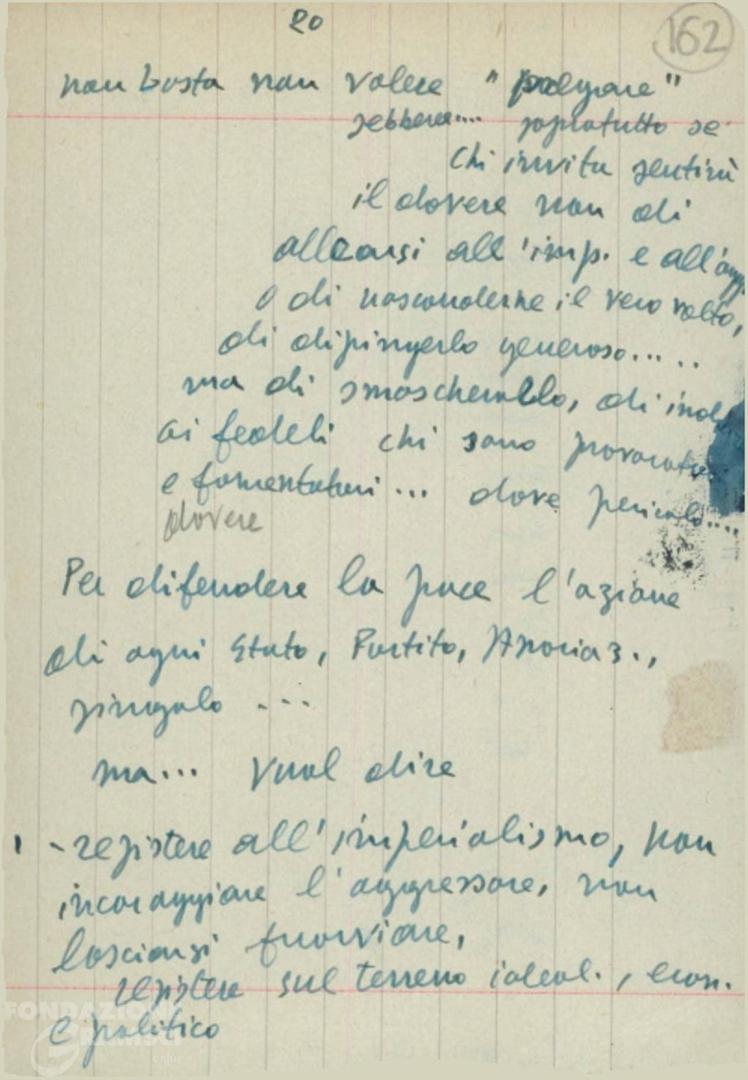 20
162
non basta non volere "pregare"
sebbene.... sopratutto se
chi invita sentirà
il dovere non di
allearsi all'imp. e all'agg.
o di nasconderne il vero volto,
di dipingerlo generoso.....
ma di smascherarlo, di indi
ai fedeli chi sono provocatori
e fomentatori... dove pericolo....
dovere
Per difendere la pace l'azione
di ogni Stato, Partito, Associaz.,
singolo ...
ma... vuol dire
1 - resistere all'imperialismo, non
incoraggiare l'aggressore, non
lasciarsi fuorviare,
resistere sul terreno ideol., econ.
e politico
FONDAZIONE
GRAMSCI